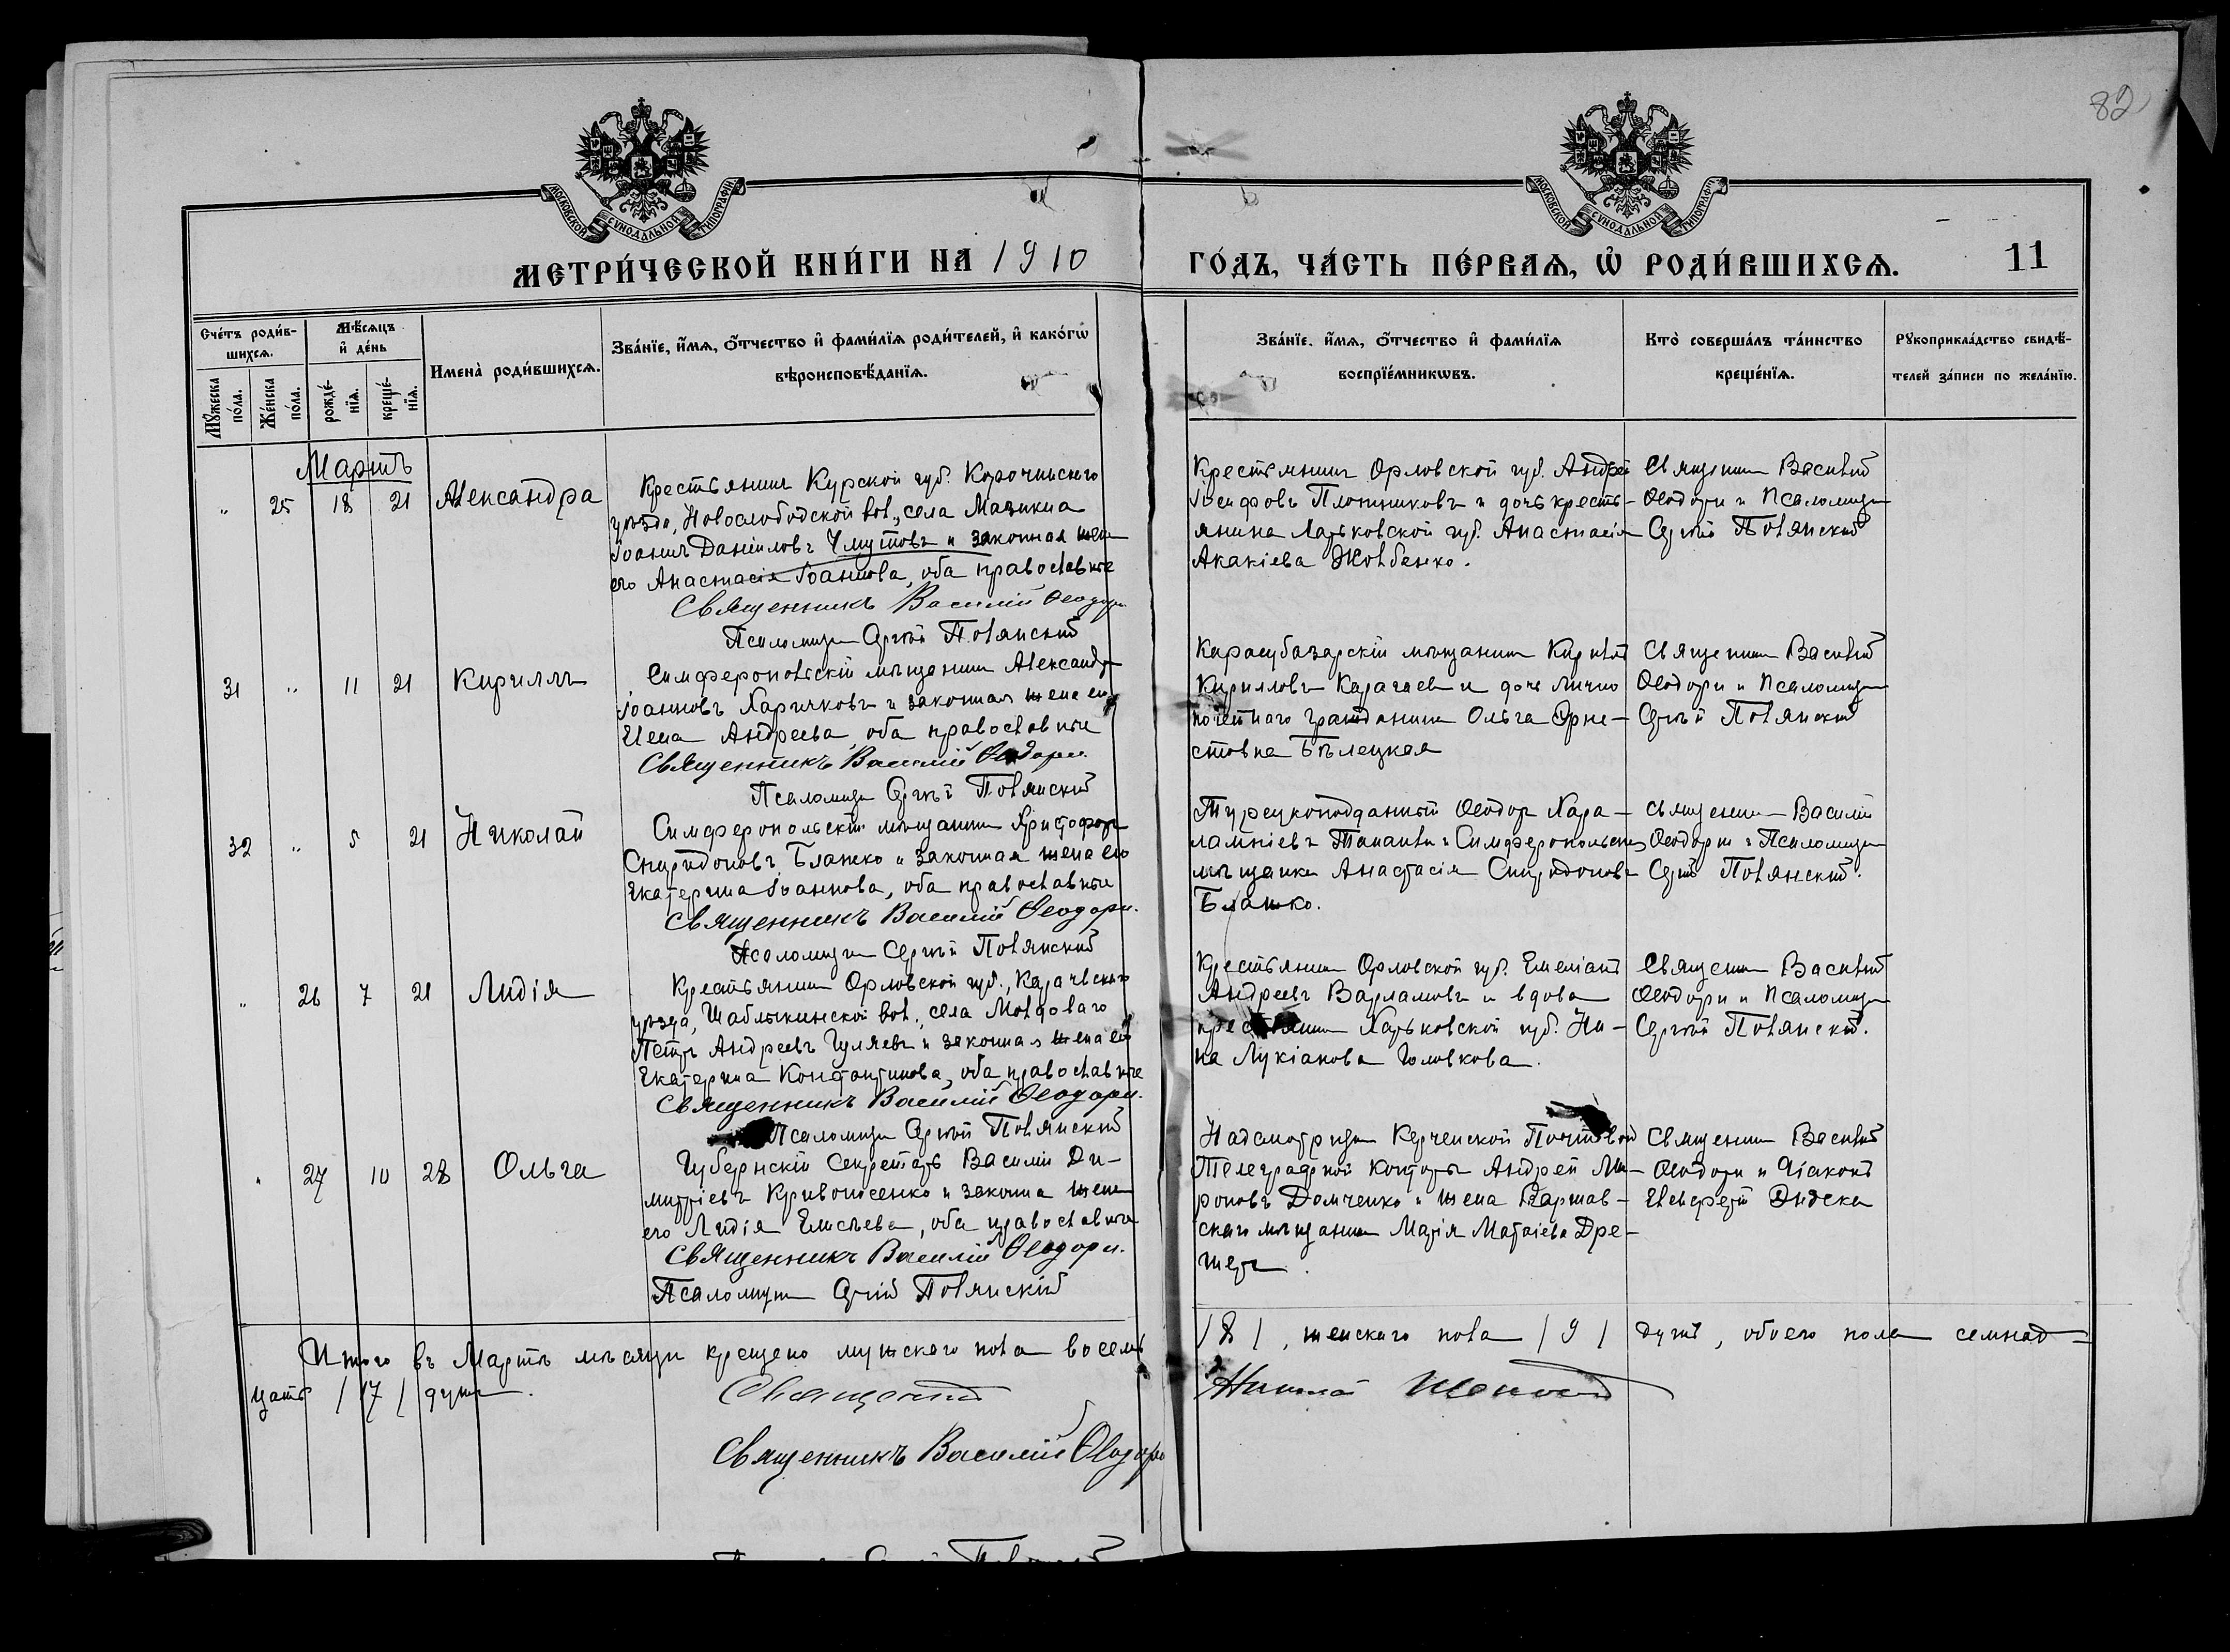 82
МОСКОВСКОЙ СУНОДАЛЬНОЙ ТИПОГРАФІИ
МОСКОВСКОЙ СУНОДАЛЬНОЙ ТИПОГРАФІИ
МЕТРИ́ЧЕСКОЙ КНИ́ГИ НА 1910
ГО́ДЪ, ЧА́СТЬ ПЕ́РВАѦ, Ѽ РОДИ́ВШИХСѦ. 11
Сче́тъ роди́в-
шихсѧ.
Мѣ́сѧцъ
и҆ де́нь
Мꙋ́жеска
по́ла.
Же́нска
по́ла.
рожде́-
нїѧ.
креще́-
нїѧ.
Имена̀ роди́вшихсѧ.
Зва́нїе, и҆́мѧ, ѻ҆́тчество и҆ фами́лїѧ роди́телей, и҆ како́гѡ
вѣроисповѣ́данїѧ.
Зва́нїе, и҆́мѧ, ѻ҆́тчество и҆ фами́лїѧ
воспрїе́мникѡвъ.
Кто̀ соверша́лъ та́инство
креще́нїѧ.
Рꙋкоприкла́дство свидѣ́-
телей за́писи по жела́нїю.
Мартъ
" 25 18 21 Александра
Крестьянинъ Курской губ. Корочинскаго
уѣзда, Новослободской вол., села Мазикина
Іоаннъ Даніиловъ Чмутовъ и законная жена
его Анастасія Іоаннова, оба православные
Священникъ Василій Ѳеодори
Псаломщикъ Сергій Полянскій
Крестьянинъ Орловской губ. Андрей
Іосифовъ Плотниковъ и дочь кресть-
янина Харьковской губ. Анастасія
Акакіева Жолбенко.
Священникъ Василій
Ѳеодори и Псаломщикъ
Сергій Полянскій
31 " 11 21 Кириллъ
Симферопольскій мѣщанинъ Александръ
Іоанновъ Харичковъ и законная жена его
Елена Андреева, оба православные
Священникъ Василій Ѳеодори.
Псаломщикъ Сергій Полянскій
Карасубазарскій мѣщанинъ Кириллъ
Кирилловъ Карагаевъ и дочь лично
почетнаго гражданина Ольга Эрне-
стовна Бѣлецкая
Священникъ Василій
Ѳеодори и Псаломщикъ
Сергій Полянскій
32 " 5 21 Николай
Симферопольскій мѣщанинъ Христофоръ
Спиридоновъ Блажко и законная жена его
Екатерина Іоаннова, оба православные
Священникъ Василій Ѳеодори.
Псаломщикъ Сергій Полянскій
Турецкоподданный Ѳеодоръ Хара-
лампіевъ и Симферопольская
мѣщанка Анастасія Спиридонова
Блажко.
Священникъ Василій
Ѳеодори и Псаломщикъ
Сергій Полянскій.
" 26 7 21 Лидія
Крестьянинъ Орловской губ., Карачевскаго
уѣзда, Шаблыкинской вол., села Молдоваго
Петръ Андреевъ Гуляевъ и законная жена его
Екатерина Константинова, оба православные
Священникъ Василій Ѳеодори.
Псаломщикъ Сергій Полянскій
Крестьянинъ Орловской губ. Емеліанъ
Андреевъ Варламовъ и вдова
крестьянина Харьковской губ. Ни-
на Лукіанова Головкова.
Священникъ Василій
Ѳеодори и Псаломщикъ
Сергій Полянскій.
" 27 10 28 Ольга
Губернскій Секретарь Василій Ди-
митріевъ Кривоносенко и законная жена
его Лидія Елисѣева, оба православные
Священникъ Василій Ѳеодори.
Псаломщикъ Сергій Полянскій
Надсмотрщикъ Керченской Почтовой
Телеграфной Конторы Андрей Ми-
роновъ Домченко и жена Варшав-
скаго мѣщанина Марія Матѳіева Дре-
жеръ.
Священникъ Василій
Ѳеодори и Діаконъ
Елевферій
Итого въ Мартѣ мѣсяцѣ крещено мужского пола восемь
/8/, женскаго пола /9/ душъ, обоего пола семнад-
цать /17/ душъ.
Священникъ Николай
Священникъ Василій Ѳеодори